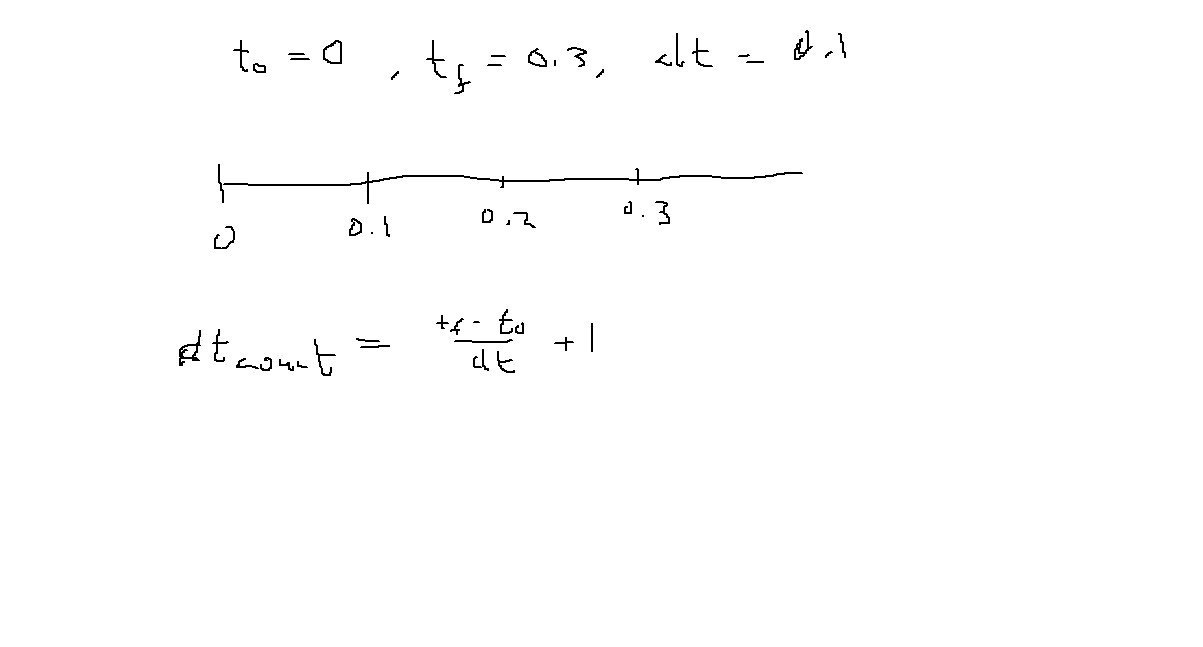 t₀ = 0 , t_f = 0.3, dt = 0.1
0 0.1 0.2 0.3
dt_count = (t_f - t₀)/dt + 1